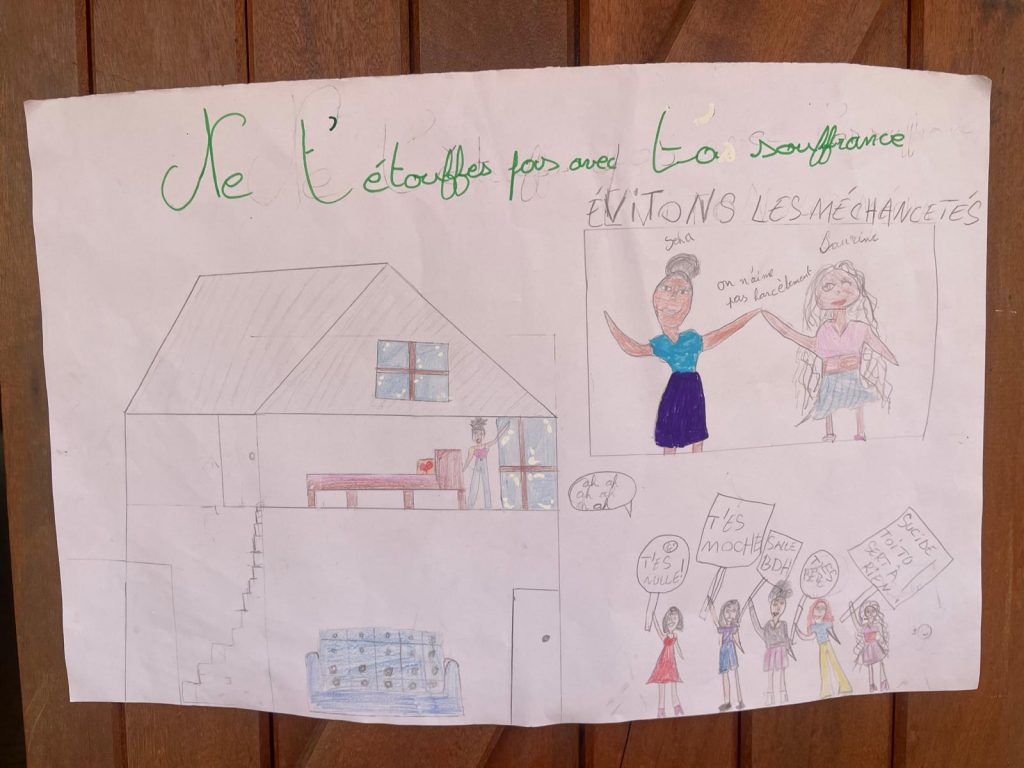 Ne t'étouffes pas avec ta souffrance
ÉVITONS LES MÉCHANCETÉS
on n'aime
pas harcèlement
ah ah
ah ah
ah ah
T'ES
NULLE!
T'ES
MOCHE
SALLE
BDH
SUICIDE
TOI TU
SERT A
RIEN!